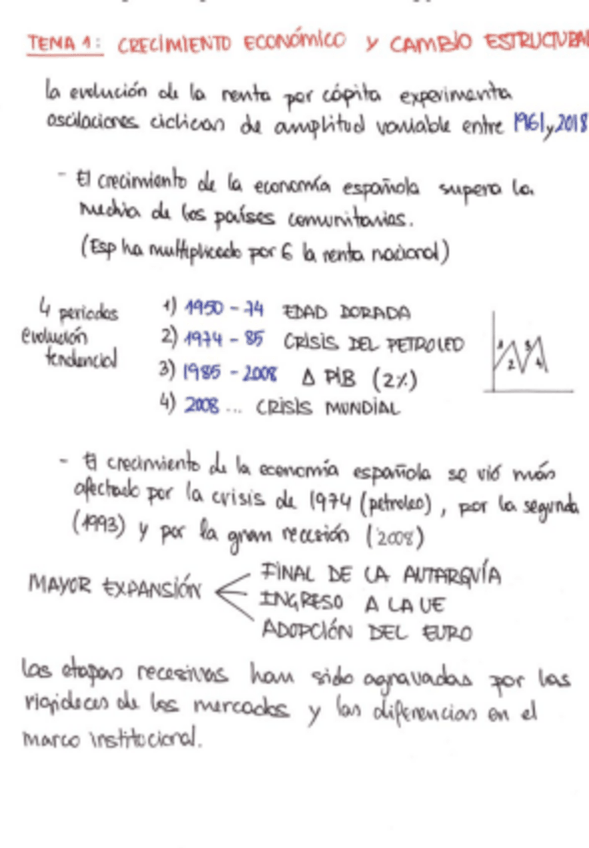 TEMA 1: CRECIMIENTO ECONÓMICO Y CAMBIO ESTRUCTURAL
la evolución de la renta por cápita experimenta
oscilaciones cíclicas de amplitud variable entre 1961 y 2018
- El crecimiento de la economía española supera la
media de los países comunitarios.
(Esp ha multiplicado por 6 la renta nacional)
4 periodos
evolución
tendencial
1) 1950 - 74 EDAD DORADA
2) 1974 - 85 CRISIS DEL PETROLEO
3) 1985 - 2008 Δ PIB (2%)
4) 2008 ... CRISIS MUNDIAL
1 2 3 4
- El crecimiento de la economía española se vió más
afectado por la crisis de 1974 (petroleo), por la segunda
(1993) y por la gran recesión (2008)
MAYOR EXPANSIÓN
FINAL DE LA AUTARQUÍA
INGRESO A LA UE
ADOPCIÓN DEL EURO
Las etapas recesivas han sido agravadas por las
rigideces de los mercados y las diferencias en el
marco institucional.